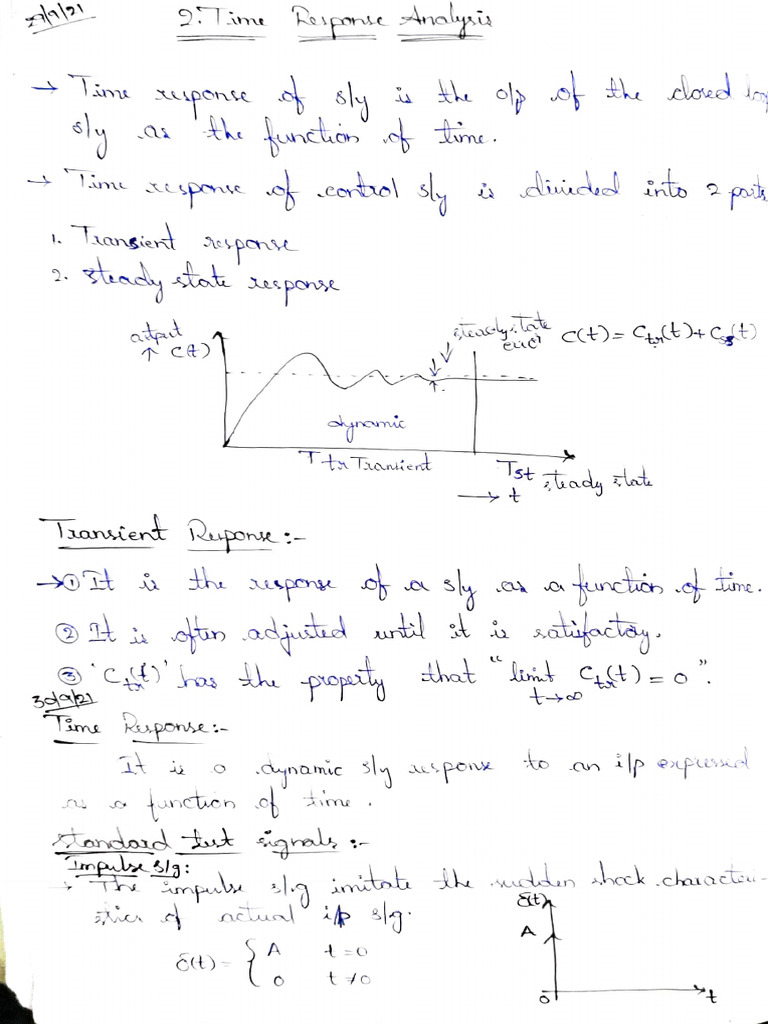 29/9/21
2. Time Response Analysis
→ Time response of s/y is the o/p of the closed loop
s/y as the function of time.
→ Time response of control s/y is divided into 2 parts
1. Transient response
2. Steady state response
output
↑ C(t)
steady state
error
C(t) = Ctr(t) + Css(t)
dynamic
Ttr Transient
Tst steady state
→ t
Transient Response:-
→① It is the response of a s/y as a function of time.
② It is often adjusted until it is satisfactory.
③ 'Ctr(t)' has the property that "limit Ctr(t) = 0".
t→∞
30/9/21
Time Response:-
It is a dynamic s/y response to an i/p expressed
as a function of time.
Standard test signals:-
Impulse s/g:
→ The impulse s/g imitate the sudden shock character-
istics of actual i/p s/g.
δ(t) = { A t=0
0 t≠0
δ(t)
A
0
t